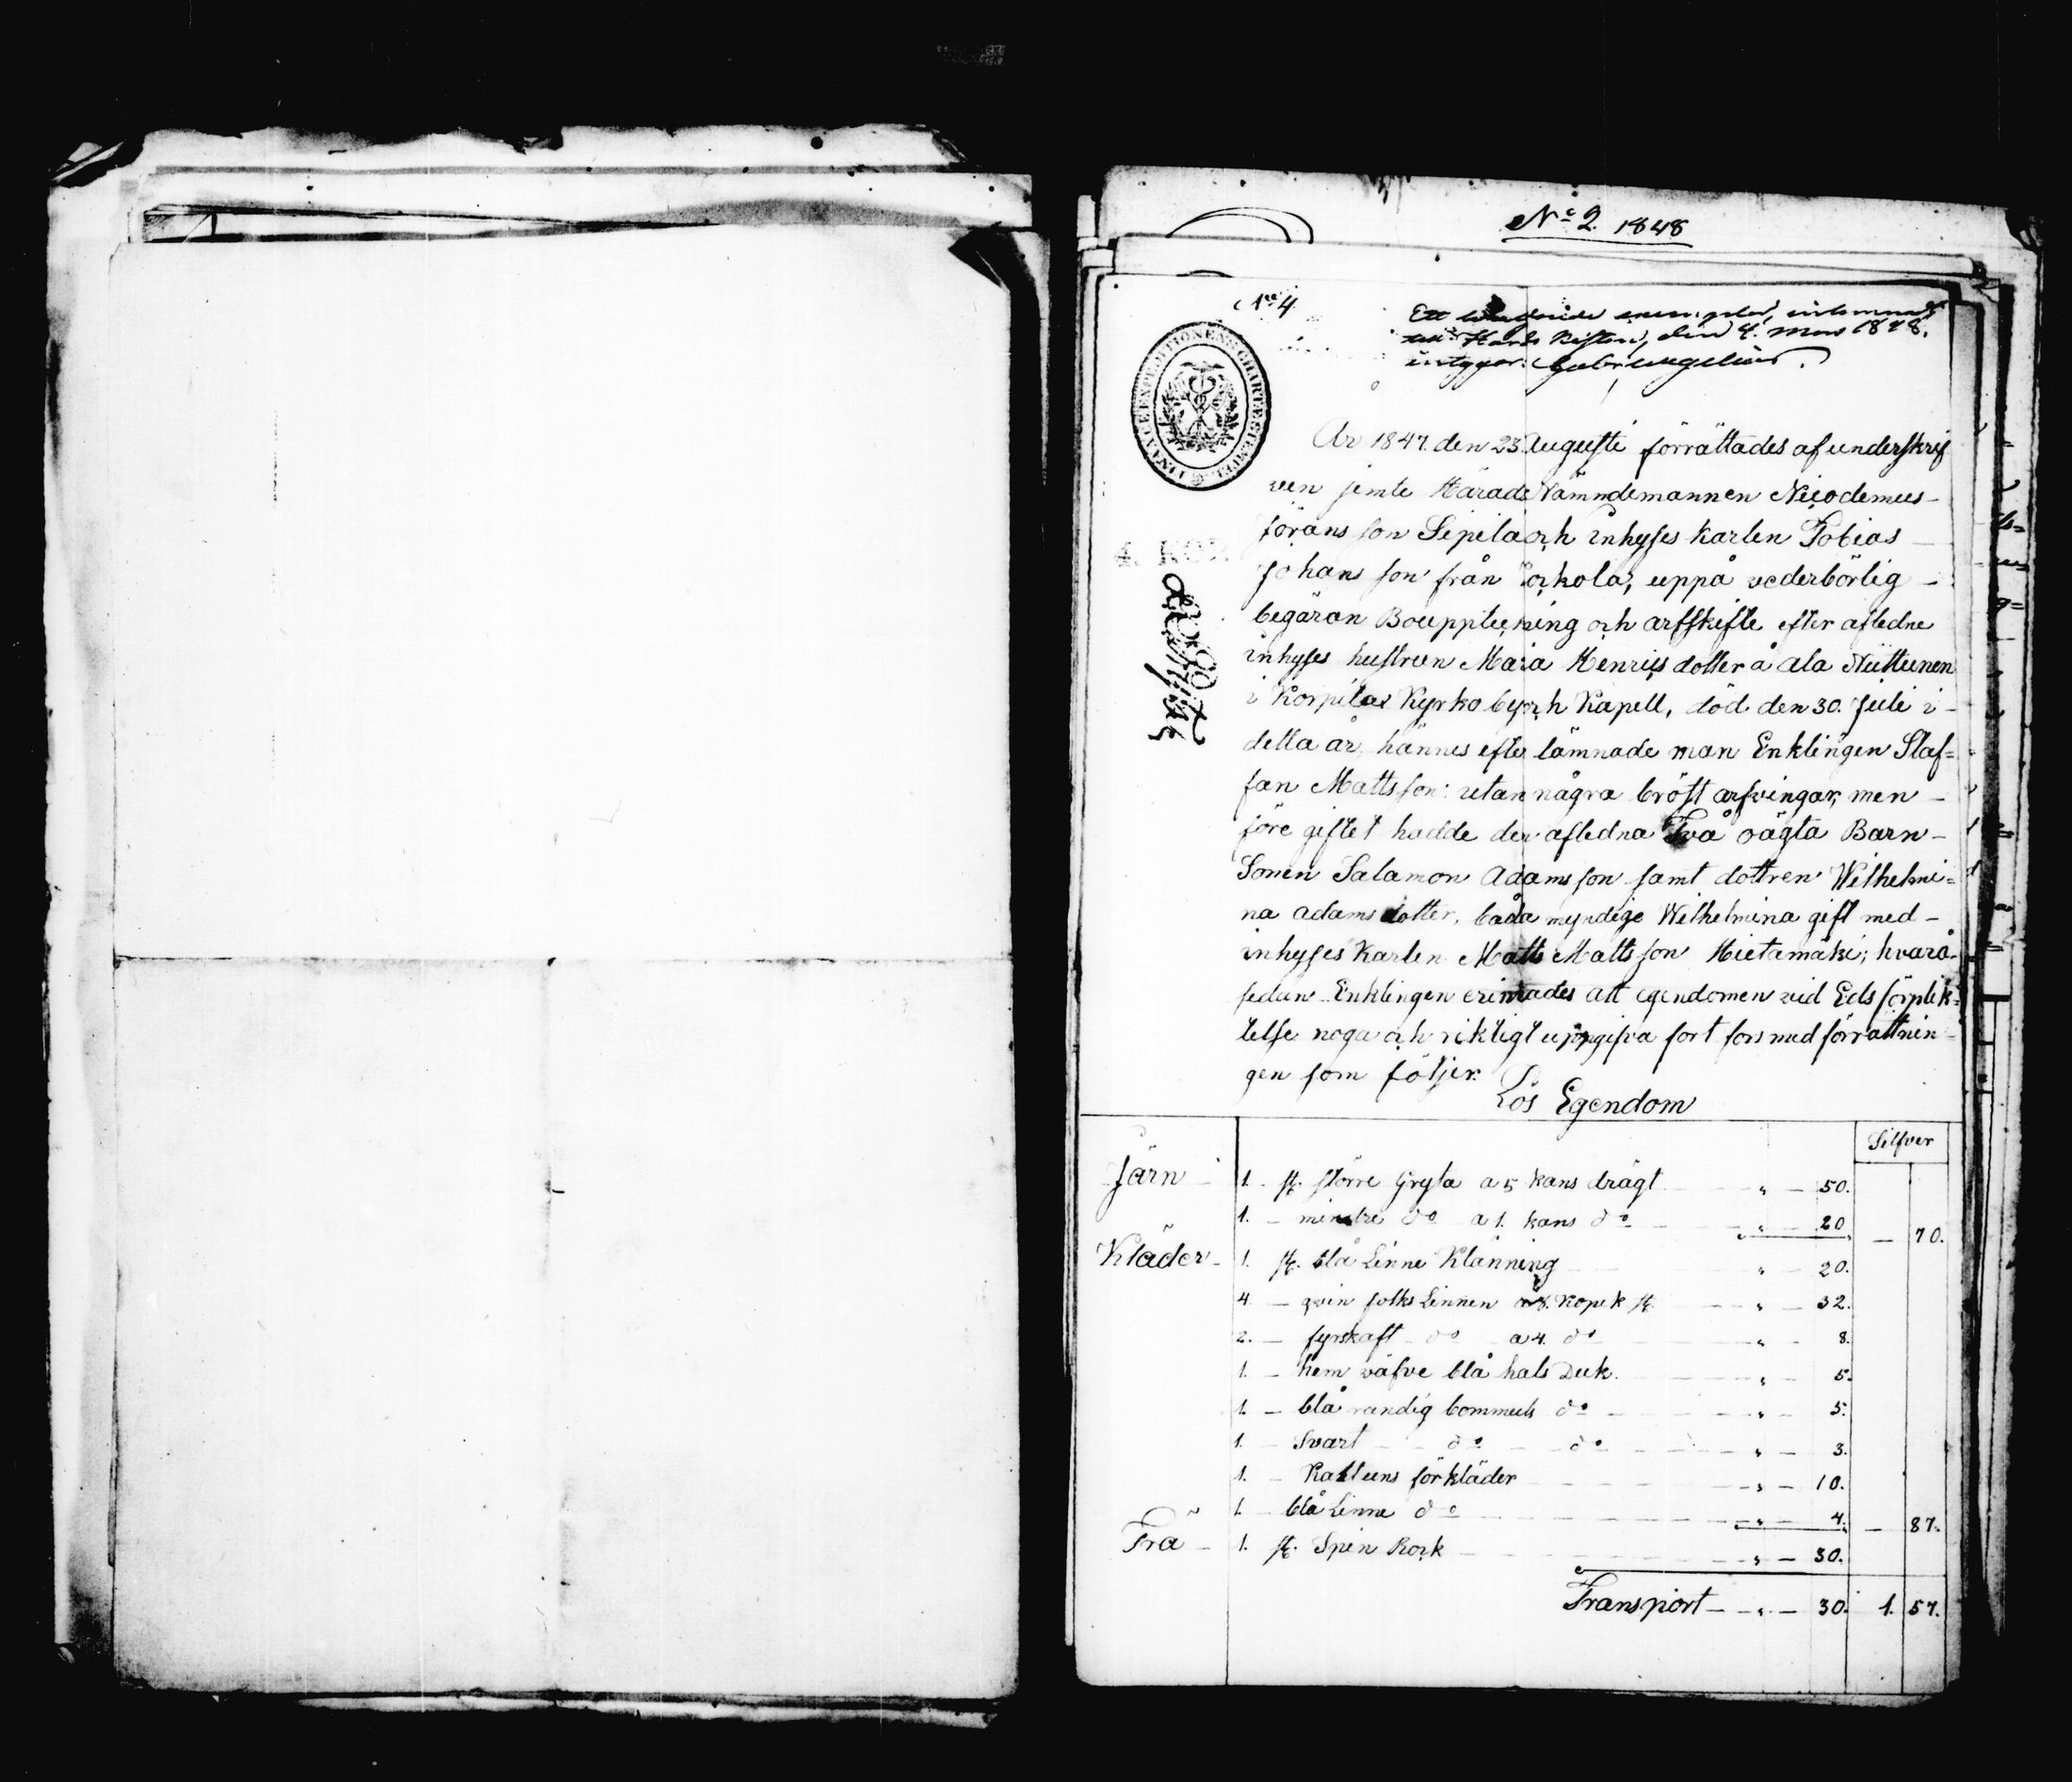 No 2. 1848
No 4
Ett exemplar, inlemnadt
till Härads Kistan, den 4. Mars 1848.
intygar.
4. KOP.
År 1847. den 23 Augusti förrättades af underskrif
ven jemte Härads Nämndemannen Nicodemus
Jöransson Sipila och inhyses karlen Tobias
Johansson från uppå vederbörlig
begäran Bouppteckning och arfskifte efter afledne
inhyses hustrun Maja Henricsdotter å ala Niittunen
i Korpilax Kyrkoby och Kapell, död den 30. Juli i
detta år, hännes efter lämnade man Enklingen Staf=
fan Mattsson: utan några bröst arfvingar, men
före giftet hadde den afledna Två oägta Barn
Sonen Salamon Adamsson samt dottren Wilhelmi=
na adamsdotter, båda myndige Wilhelmina gift med
inhyses Karlen Matts Mattsson Hietamäki; hvarå
sedan Enklingen erinrades att egendomen vid Eds förplik=
telse noga och riktigt uppgifva fort fors med förrättnin
gen som följer.
Lös Egendom
Silfver
Järn 1. st. större Gryta a 5 kans drägt " 50.
1. mindre do a 1. kans do " 20 70.
Kläder 1. st. blå Linne Klänning " 20.
4 qvin folks Linnen a 8. Kopek st. " 32.
2. fyrskaft do a 4. do " 8.
1. hem väfve blå hals Duk. " 5.
1. blå randig bommuls do " 5.
1. Svart do do " 3.
1. Kattuns förkläder " 10.
1. blå Linne do " 4. 87.
Trä 1. st. Spin Rock " 30.
Transport " 30. 1. 57.